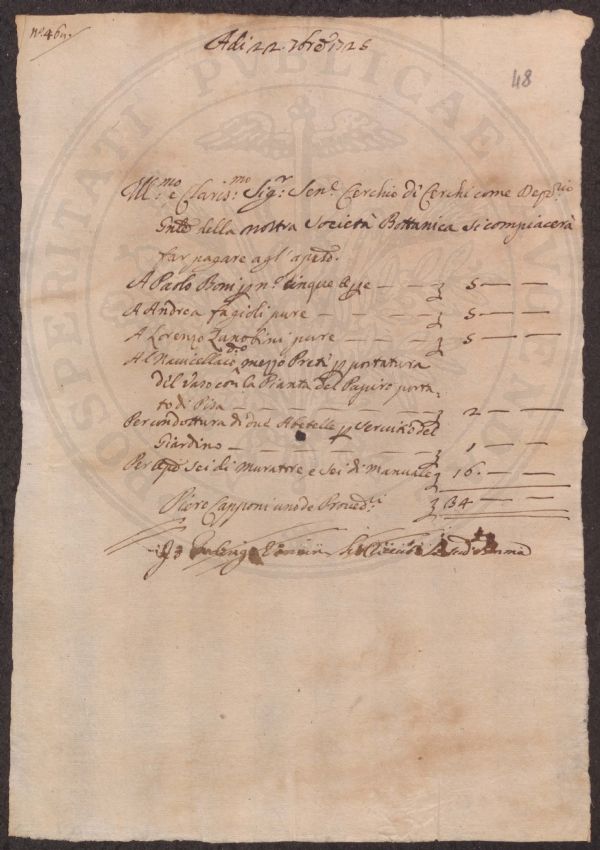 Nº: 46
Adi 22. 7bre 1725
48
Ill:mo e Claris:mo Sig:r Sen:e Cerchio di Cerchi come Depos:rio
Gnle della nostra Società Bottanica si compiacerà
far pagare agl'apeso:
A Paolo Boni p n: cinque opre — — — 5 — —
A Andrea fagioli pure — — — — 5 — —
A Lorenzo Zanobini pure — — — 5 — —
Al Navicellaio di mezzo Preti p portatura
del Vaso con la Pianta del Papiro porta-
to di Pisa — — — — — 2 — —
Per condottura di due Abetelle p Servitio del
Giardino — — — — — 1 — —
Per opre sei di Muratore e sei di Manuale 16 — —
Piero Capponi uno de Proved:ri 34 — —
Io